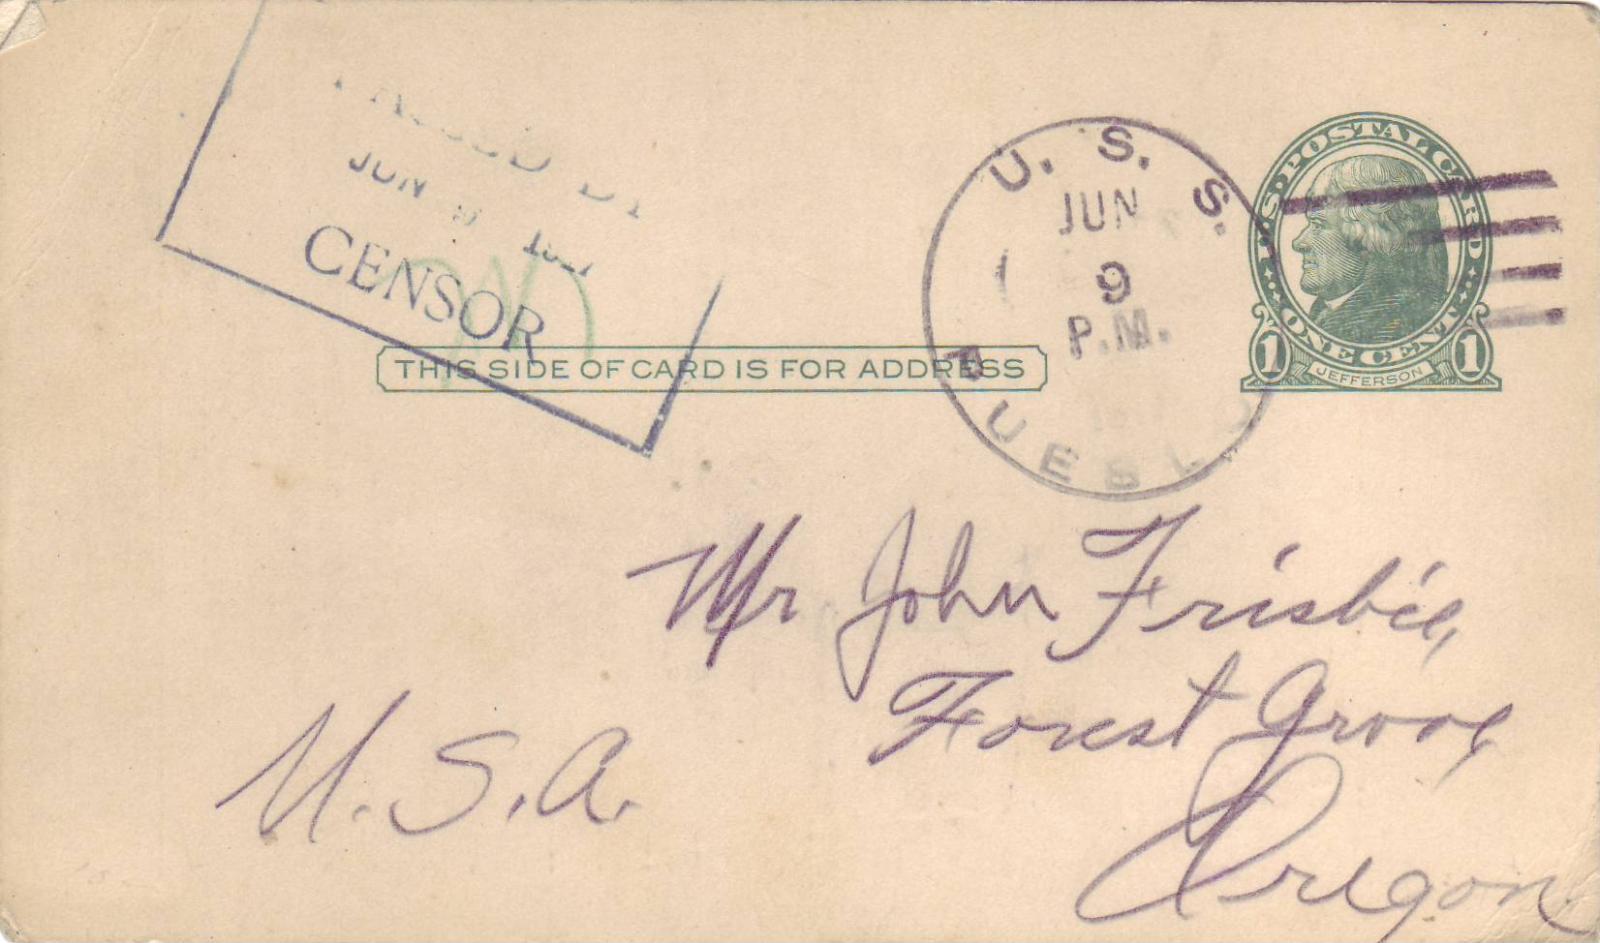 PASSED BY
JUN 9
CENSOR
U. S. S.
JUN
9
P.M.
PUEBLO
U.S. POSTAL CARD
ONE CENT
1 1
JEFFERSON
THIS SIDE OF CARD IS FOR ADDRESS
Mr John Frisbie,
Forest Grove,
Oregon
U.S.A.